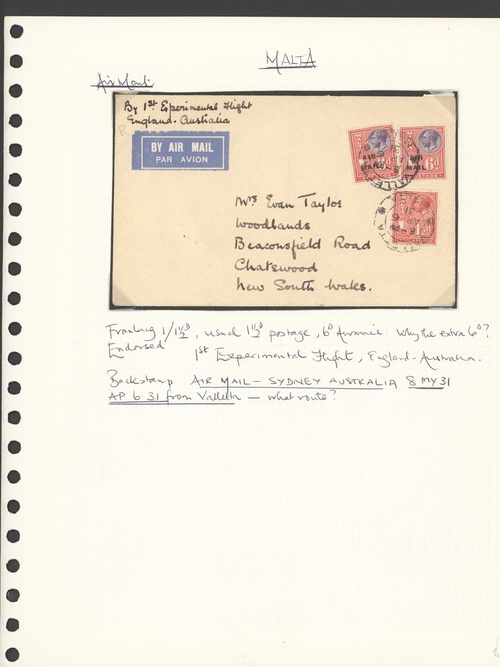 MALTA
Air Mail.
By 1st Experimental Flight
England-Australia
BY AIR MAIL
PAR AVION
AIR
MAIL
6d
AIR
MAIL
6d
POSTAGE
VALLETTA
MALTA
Mrs Evan Taylor
Woodlands
Beaconsfield Road
Chatswood
New South Wales.
Franking 1/1½d, usual 1½d postage, 6d Airmail. Why the extra 6d?
Endorsed 1st Experimental Flight, England-Australia.
Backstamp AIR MAIL - SYDNEY AUSTRALIA 8 MY 31
AP 6 31 from Valletta - what route?